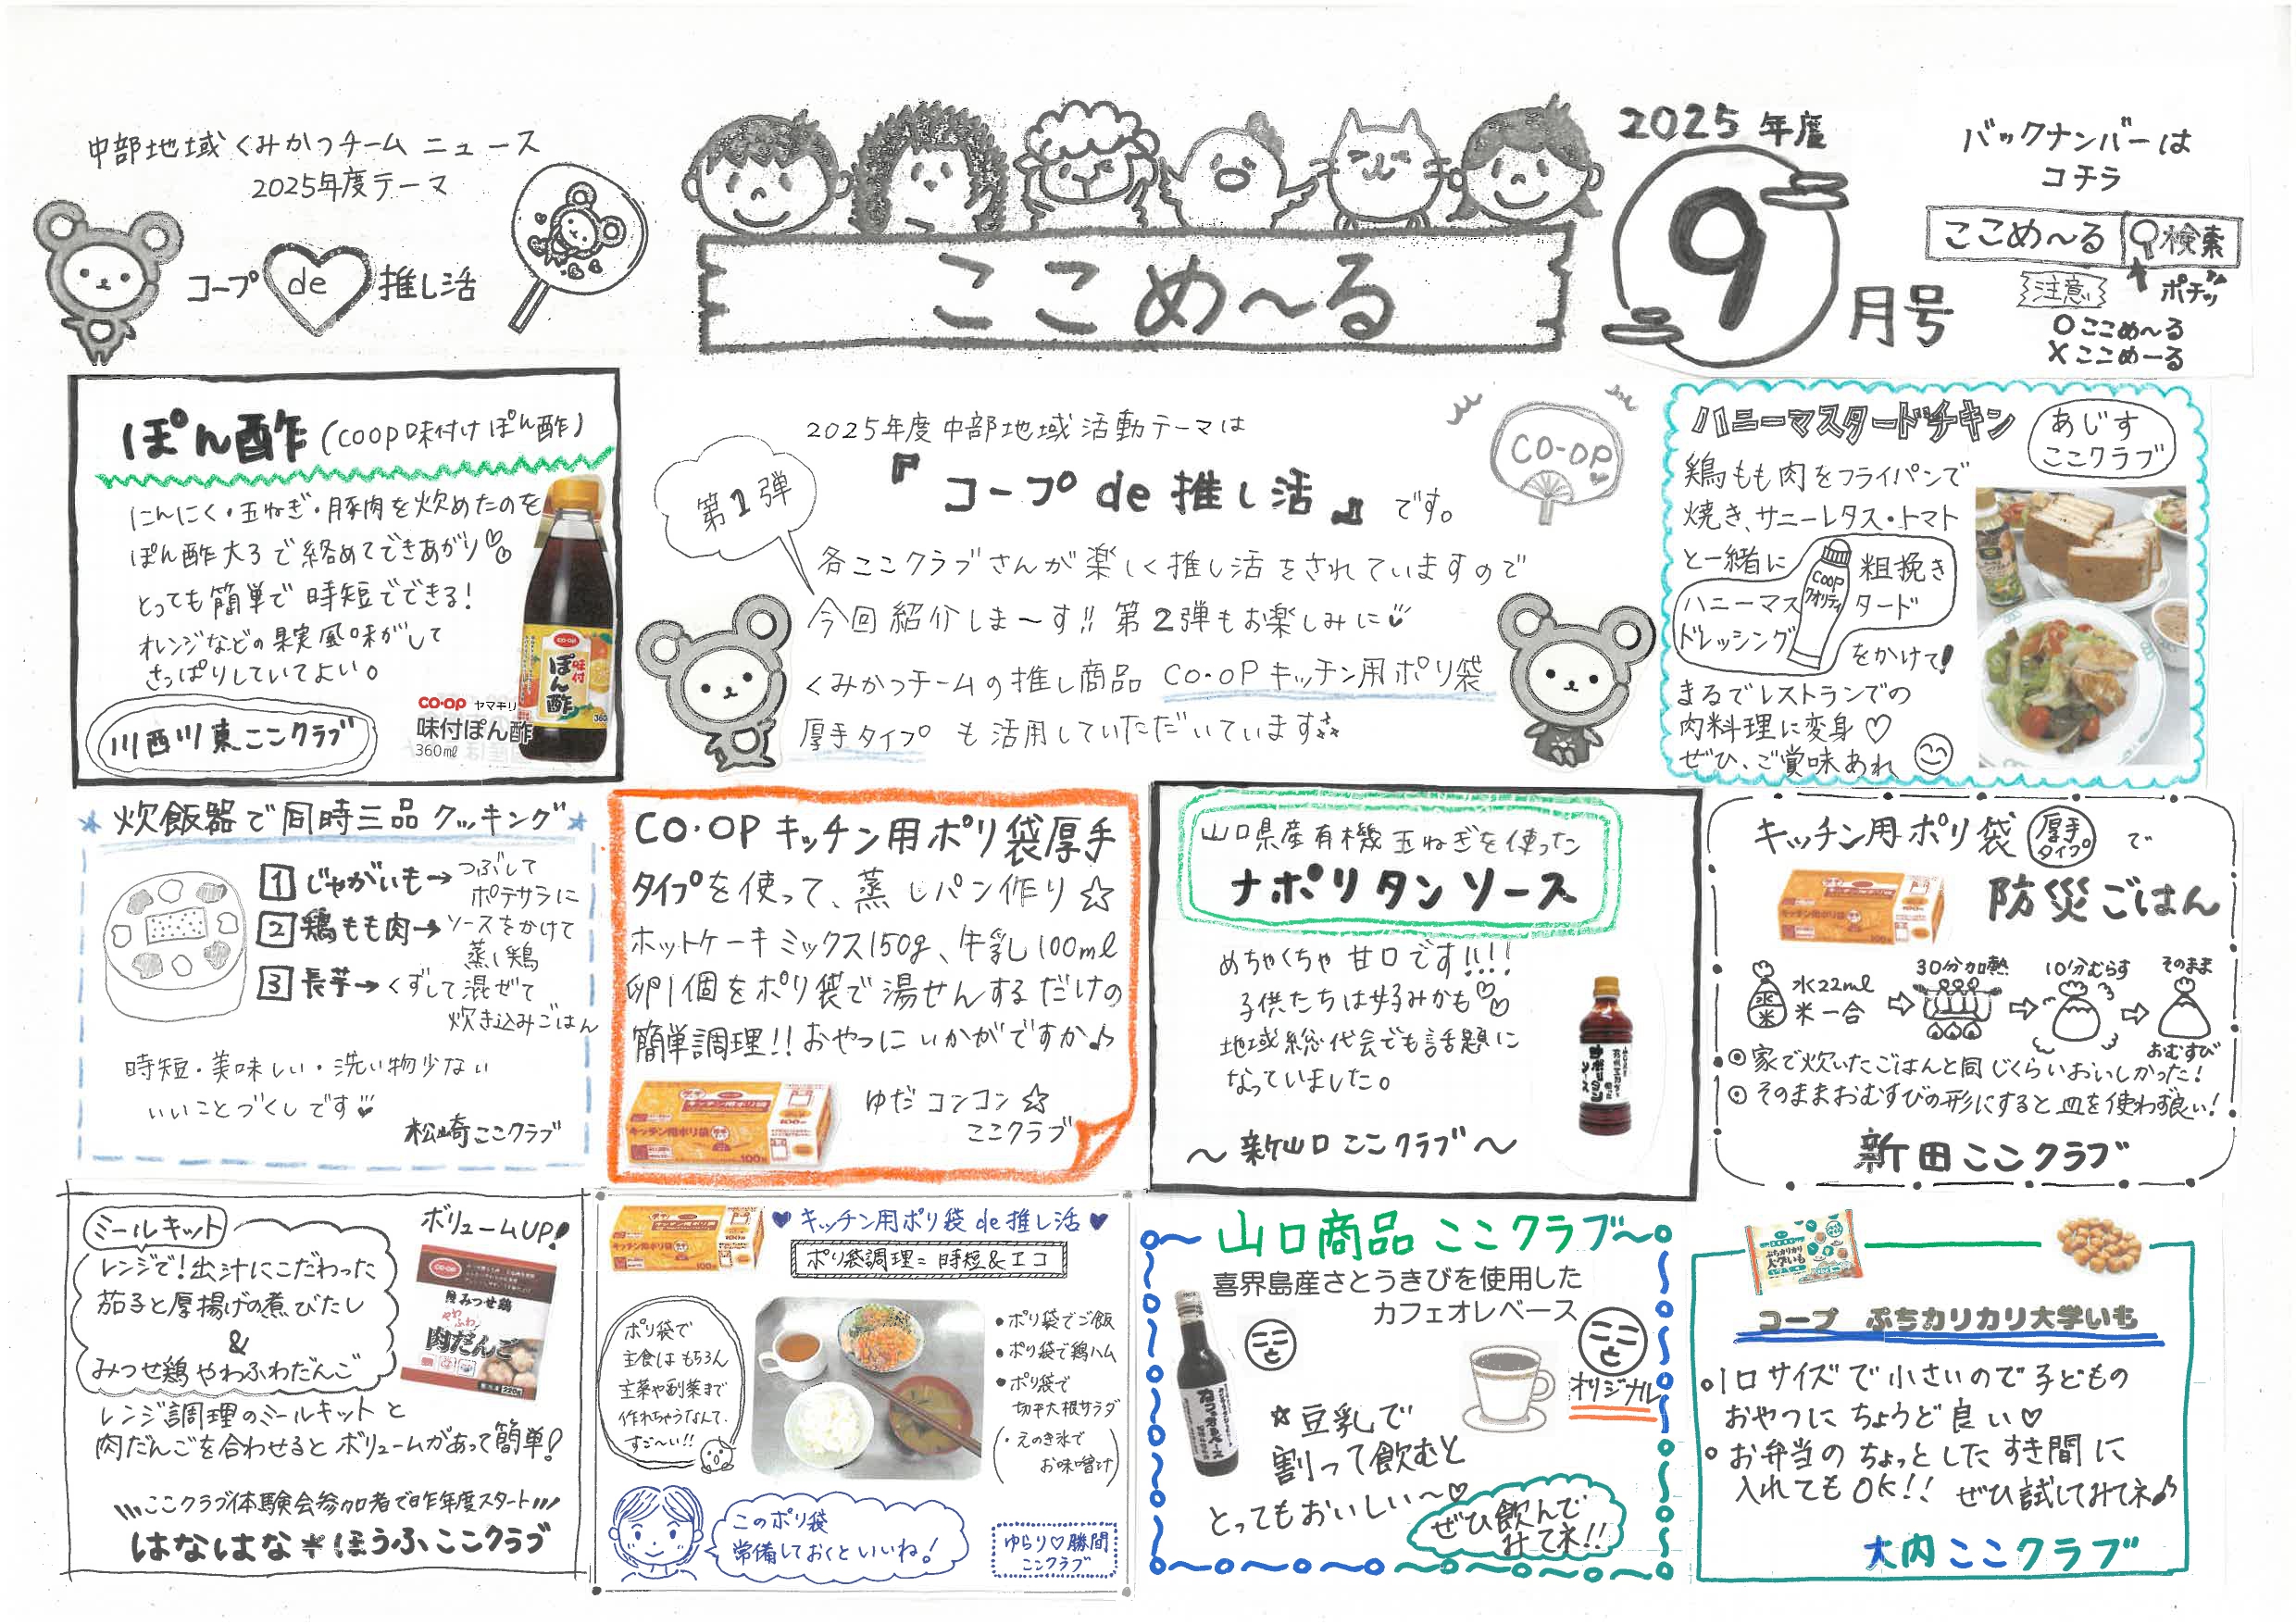 中部地域くみかつチーム ニュース
2025年度テーマ
コープ de 推し活
ここめ～る
2025年度
9月号
バックナンバーは
コチラ
ここめ～る 検索
注意 ポチッ
○ここめ～る
×ここめーる
ぽん酢 (COOP味付けぽん酢)
にんにく・玉ねぎ・豚肉を炊めたのを
ぽん酢大3で絡めてできあがり
とっても簡単で時短でできる!
オレンジなどの果実風味がして
さっぱりしていてよい。
川西川東ここクラブ
CO・OP ヤマキリ
味付ぽん酢
360ml
味付
ぽん酢
第1弾
2025年度中部地域活動テーマは
『コープde推し活』です。
CO-OP
各ここクラブさんが楽しく推し活をされていますので
今回紹介しま～す!! 第2弾もお楽しみに
くみかつチームの推し商品 CO・OPキッチン用ポリ袋
厚手タイプ も活用していただいています
ハニーマスタードチキン
あじす
ここクラブ
鶏もも肉をフライパンで
焼き、サニーレタス・トマト
と一緒に 粗挽き
ハニーマスタード
ドレッシング をかけて!
COOP
クオリティ
まるでレストランでの
肉料理に変身♡
ぜひ、ご賞味あれ
★炊飯器で同時三品クッキング★
1 じゃがいも→つぶして
ポテサラに
2 鶏もも肉→ソースをかけて
蒸し鶏
3 長芋→くずして混ぜて
炊き込みごはん
時短・美味しい・洗い物少ない
いいことづくしです
松崎ここクラブ
CO・OPキッチン用ポリ袋厚手
タイプを使って、蒸しパン作り☆
ホットケーキミックス150g、牛乳100ml
卵1個をポリ袋で湯せんするだけの
簡単調理!! おやつにいかがですか♪
キッチン用ポリ袋
ゆだコンコン☆
ここクラブ
山口県産有機玉ねぎを使った
ナポリタンソース
めちゃくちゃ甘口です!!!!
子供たちは好みかも
地域総代会でも話題に
なっていました。
ナポリタン
ソース
～新山口ここクラブ～
キッチン用ポリ袋 厚手タイプ で
防災ごはん
水
米
水22ml
米一合
30分加熱
10分むらす
そのまま
おむすび
◎家で炊いたごはんと同じくらいおいしかった!
◎そのままおむすびの形にすると皿を使わず良い!
新田ここクラブ
ミールキット
ボリュームUP!
レンジで!出汁にこだわった
茄子と厚揚げの煮びたし
&
みつせ鶏やわふわだんご
みつせ鶏
やわふわ
肉だんご
220g
レンジ調理のミールキットと
肉だんごを合わせるとボリュームがあって簡単!
ここクラブ体験会参加者で昨年度スタート
はなはな*ほうふここクラブ
♥キッチン用ポリ袋de推し活♥
ポリ袋調理=時短&エコ
ポリ袋で
主食はもちろん
主菜や副菜まで
作れちゃうなんて、
すご～い!!
•ポリ袋でご飯
•ポリ袋で鶏ハム
•ポリ袋で
切干大根サラダ
(・えのき氷で
お味噌汁)
このポリ袋
常備しておくといいね!
ゆらり♡勝間
ここクラブ
山口商品ここクラブ
喜界島産さとうきびを使用した
カフェオレベース
ここと
ここと
オリジナル
☆豆乳で
割って飲むと
とってもおいしい～♡
ぜひ飲んで
みてネ!!
ぷちカリカリ
大学いも
コープ ぷちカリカリ大学いも
○1口サイズで小さいので子どもの
おやつにちょうど良い♡
○お弁当のちょっとしたすき間に
入れてもOK!! ぜひ試してみてネ♪
大内ここクラブ